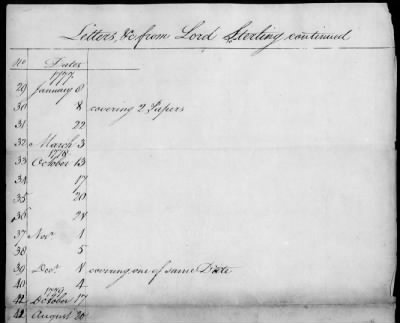 Letters, &c from Lord Sterling continued
No Dates
1777
29 January 6
30 8 covering 2 Papers
31 22
32 March 3
1778
33 October 13
34 17
35 20
36 24
37 Novr. 1
38 5
39 Decr. 1 covering one of same Date
40 4
1779
41 October 17
42 August 20